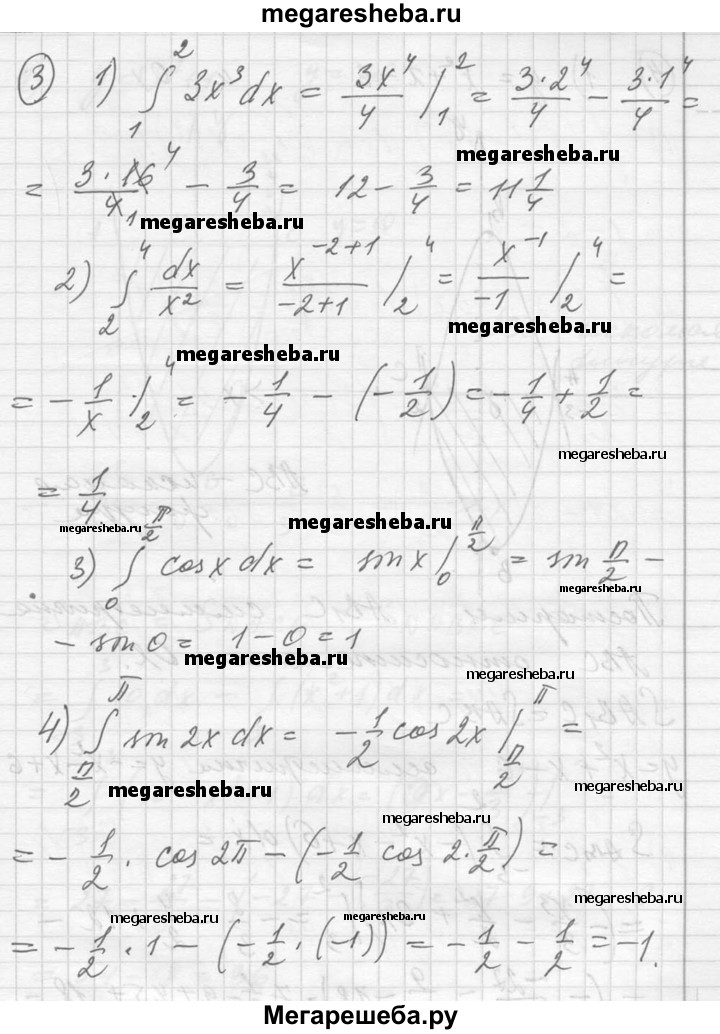 megaresheba.ru
③ 1) ∫₁² 3x³dx = 3x⁴/4 |₁² = 3·2⁴/4 − 3·1⁴/4 =
megaresheba.ru
= 3·16⁴/4₁ − 3/4 = 12 − 3/4 = 11 1/4
megaresheba.ru
2) ∫₂⁴ dx/x² = x⁻²⁺¹/−2+1 |₂⁴ = x⁻¹/−1 |₂⁴ =
megaresheba.ru
megaresheba.ru
= −1/x ·|₂⁴ = −1/4 − (−1/2) = −1/4 + 1/2 =
megaresheba.ru
= 1/4
megaresheba.ru
megaresheba.ru
3) ∫₀^(π/2) cosx dx = sin x |₀^(π/2) = sin π/2 −
megaresheba.ru
− sin 0 = 1 − 0 = 1
megaresheba.ru
megaresheba.ru
4) ∫_(π/2)^π sin 2x dx = −1/2 cos 2x |_(π/2)^π =
megaresheba.ru
megaresheba.ru
= −1/2 · cos 2π − (−1/2 cos 2·π/2) =
megaresheba.ru
megaresheba.ru
megaresheba.ru
= −1/2 · 1 − (−1/2 · (−1)) = −1/2 − 1/2 = −1.
Мегарешеба.ру